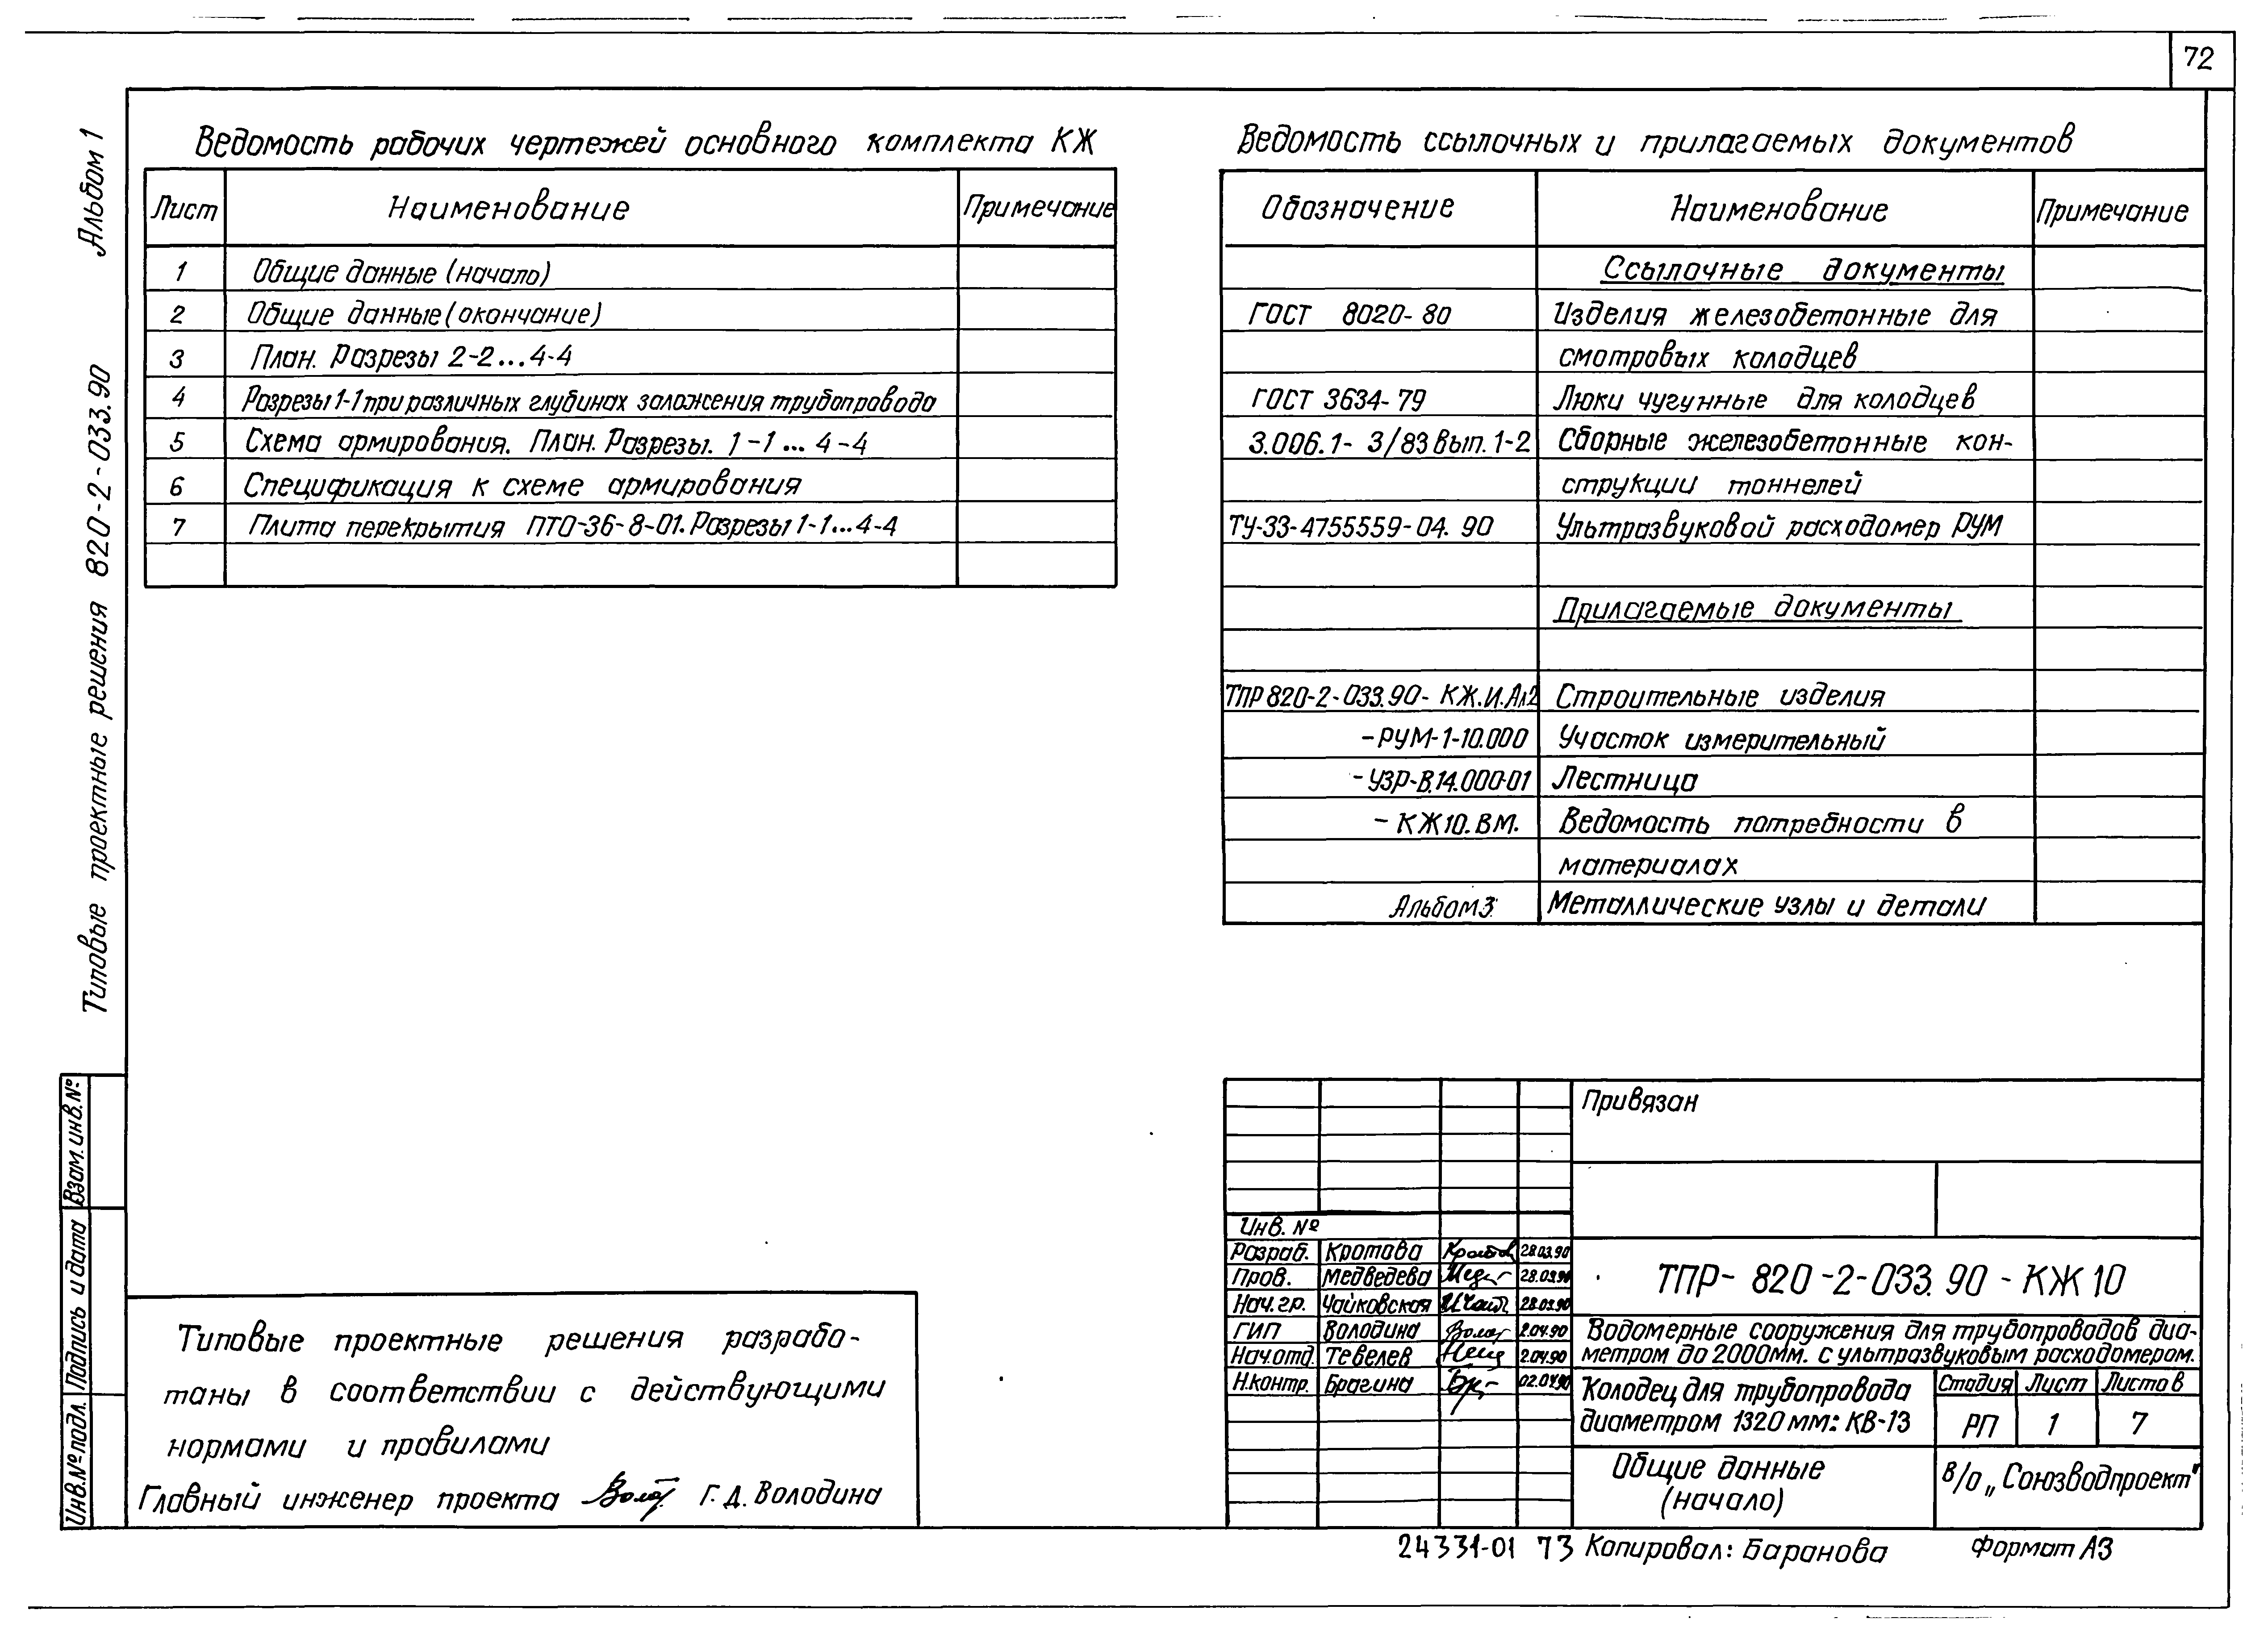 72
Альбом 1
Типовые проектные решения 820-2-033.90
Взам.инв.№
Подпись и дата
Инв.№ подл.
Ведомость рабочих чертежей основного комплекта КЖ
Лист Наименование Примечание
1 Общие данные (начало)
2 Общие данные (окончание)
3 План. Разрезы 2-2...4-4
4 Разрезы 1-1 при различных глубинах заложения трубопровода
5 Схема армирования. План. Разрезы. 1-1... 4-4
6 Спецификация к схеме армирования
7 Плита перекрытия ПТО-36-8-01. Разрезы 1-1...4-4
Ведомость ссылочных и прилагаемых документов
Обозначение Наименование Примечание
Ссылочные документы
ГОСТ 8020-80 Изделия железобетонные для
смотровых колодцев
ГОСТ 3634-79 Люки чугунные для колодцев
3.006.1-3/83 Вып. 1-2 Сборные железобетонные кон-
струкции тоннелей
ТУ-33-4755559-04.90 Ультразвуковой расходомер РУМ
Прилагаемые документы
ТПР 820-2-033.90-КЖ.И.Ал2 Строительные изделия
-РУМ-1-10.000 Участок измерительный
-УЗР-В.14.000-01 Лестница
-КЖ10.ВМ. Ведомость потребности в
материалах
Альбом 3 Металлические узлы и детали
Типовые проектные решения разрабо-
таны в соответствии с действующими
нормами и правилами
Главный инженер проекта Г.Д. Володина
Привязан
Инв. №
Разраб. Кротова 28.03.90
Пров. Медведева 28.03.90
Нач.гр. Чайковская 28.03.90
ГИП Володина 2.04.90
Нач.отд. Тевелев 2.04.90
Н.контр. Брагина 02.04.90
ТПР-820-2-033.90-КЖ10
Водомерные сооружения для трубопроводов диа-
метром до 2000мм. с ультразвуковым расходомером.
Колодец для трубопровода
диаметром 1320 мм: КВ-13
Стадия Лист Листов
РП 1 7
Общие данные
(начало)
В/о „Союзводпроект"
24331-01 73 Копировал: Баранова Формат А3